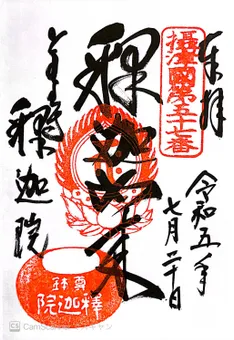 奉拝
摂津国第五十三番
令和五年
七月二十日
釋迦如来
釋迦院
尊鉢
釋迦院
CS CamScanner